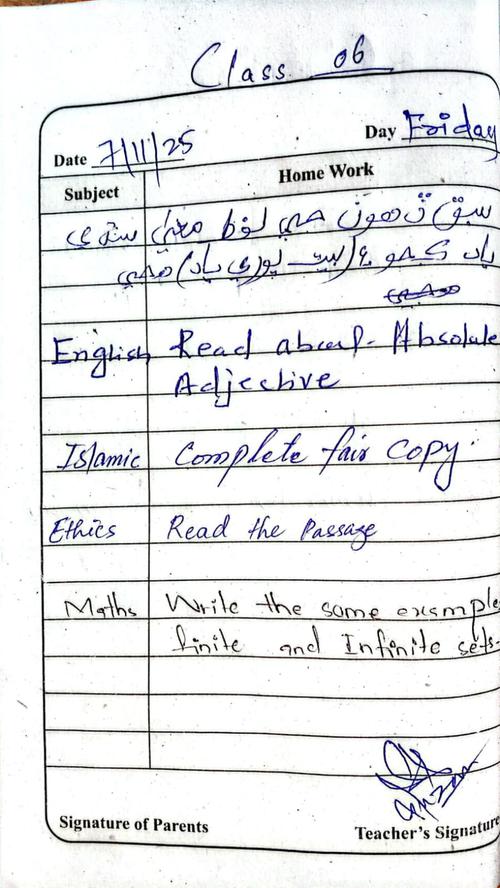 Class 06
Day Friday
Date 7/11/25
Subject Home Work
سنڌي سبق ڏھون جي لفظ معنيٰ
ياد ڪجو ۽ (بيت پوري ياد)
English Read about Absolute
Adjective
Islamic Complete fair copy.
Ethics Read the Passage
Maths Write the some example
finite and Infinite sets.
Signature of Parents Teacher's Signature